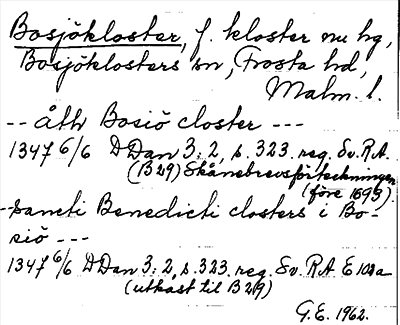 Bosjökloster, f. kloster nu hg,
Bosjöklosters sn, Frosta hd,
Malm. l.
-- åth Bosiö closter ---
1347 6/6 DDan 3:2, s. 323. reg. Sv. RA.
(B 29) Skånebrevsförteckningen
(före 1695)
--sancti Benedicti closters i Bo-
siö ---
1347 6/6 DDan 3:2, s. 323. reg. Sv. RA E 108a
(utkast til B 29)
G.E. 1962.